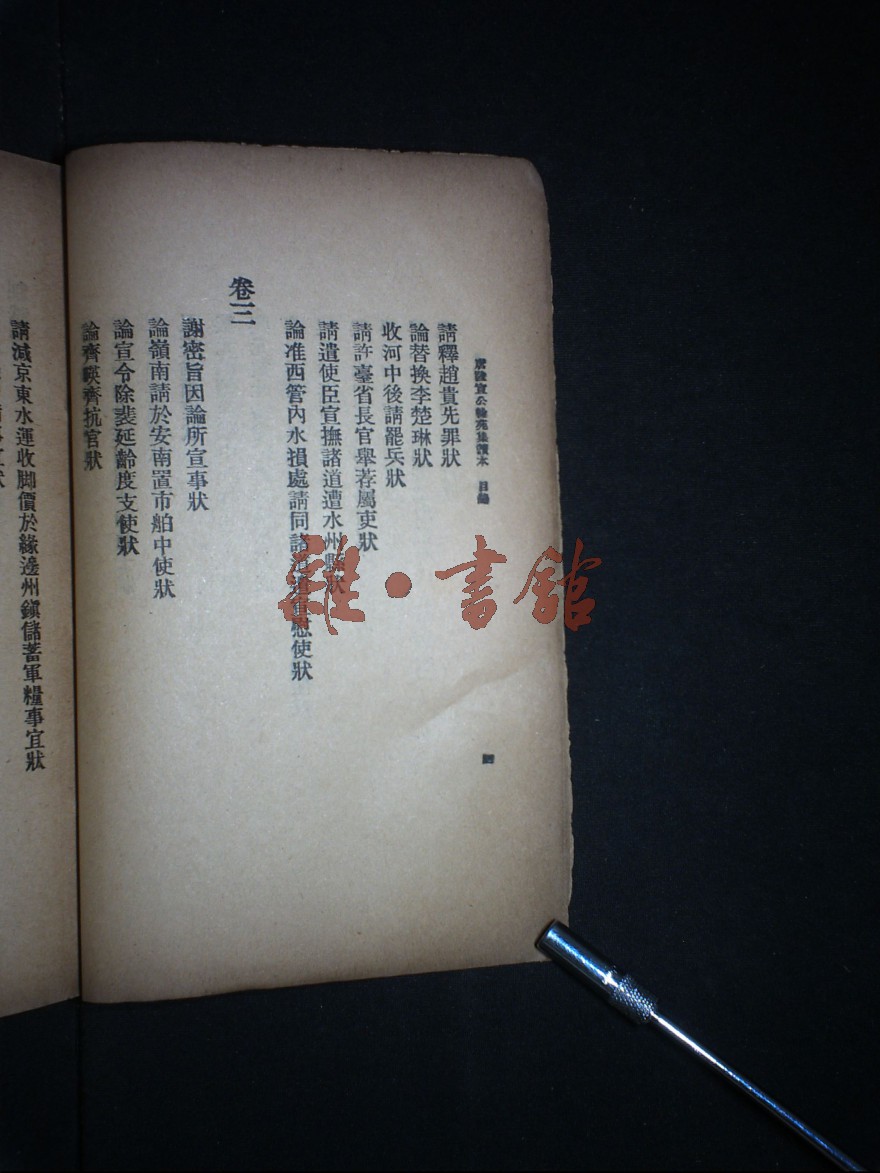 唐陸宣公翰苑集讀本 目錄
請釋趙貴先罪狀
論替換李楚琳狀
收河中後請罷兵狀
請許臺省長官舉荐屬吏狀
請遣使臣宣撫諸道遭水州縣狀
論淮西管內水損處請同諸道遣宣慰使狀
卷三
謝密旨因論所宣事狀
論嶺南請於安南置市舶中使狀
論宣令除裴延齡度支使狀
論齊暎齊抗官狀
請減京東水運收脚價於緣邊州鎮儲蓄軍糧事宜狀
四
雜·書館